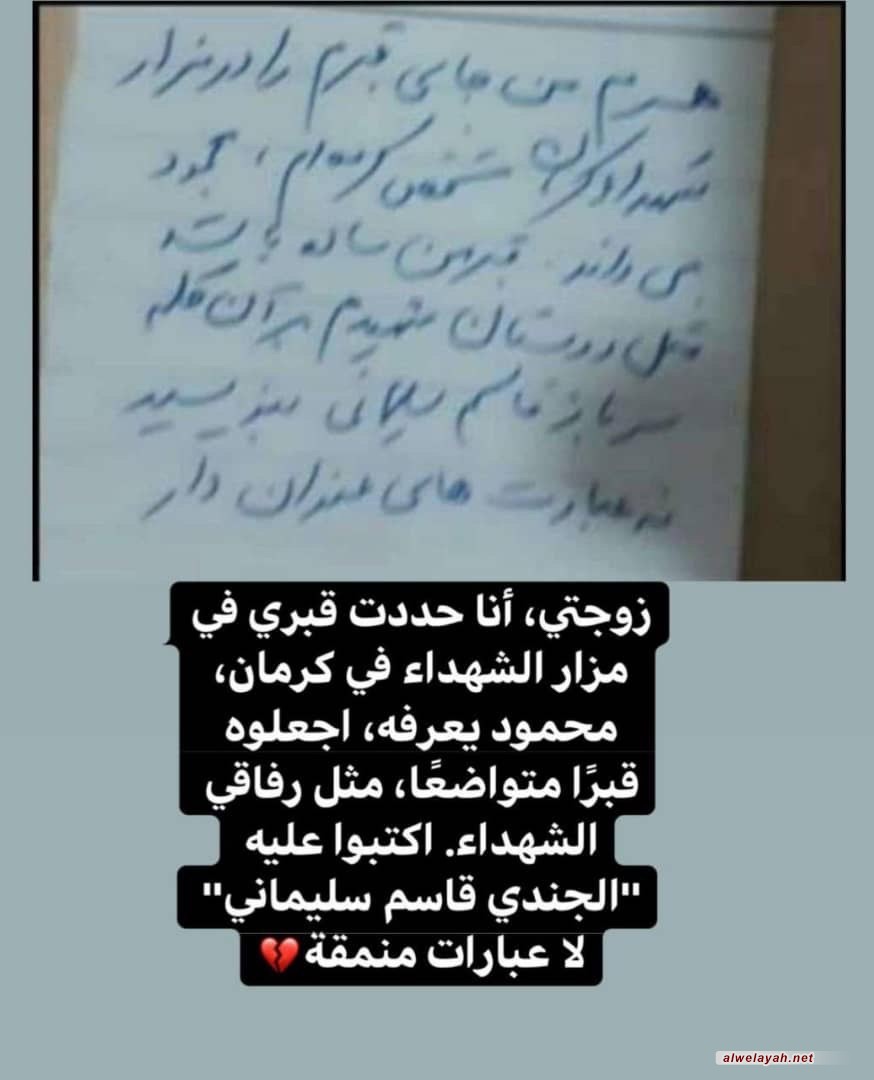 همسرم من جای قبرم را در مزار
شهدای کرمان مشخص کرده‌ام، محمود
می داند. قبر من ساده باشد
مثل دوستان شهیدم بر آن کلمه
سرباز قاسم سلیمانی بنویسید
نه عبارت های عنوان دار
زوجتي، أنا حددت قبري في
مزار الشهداء في كرمان،
محمود يعرفه، اجعلوه
قبرًا متواضعًا، مثل رفاقي
الشهداء. اكتبوا عليه
"الجندي قاسم سليماني"
لا عبارات منمقة💔
alwelayah.net